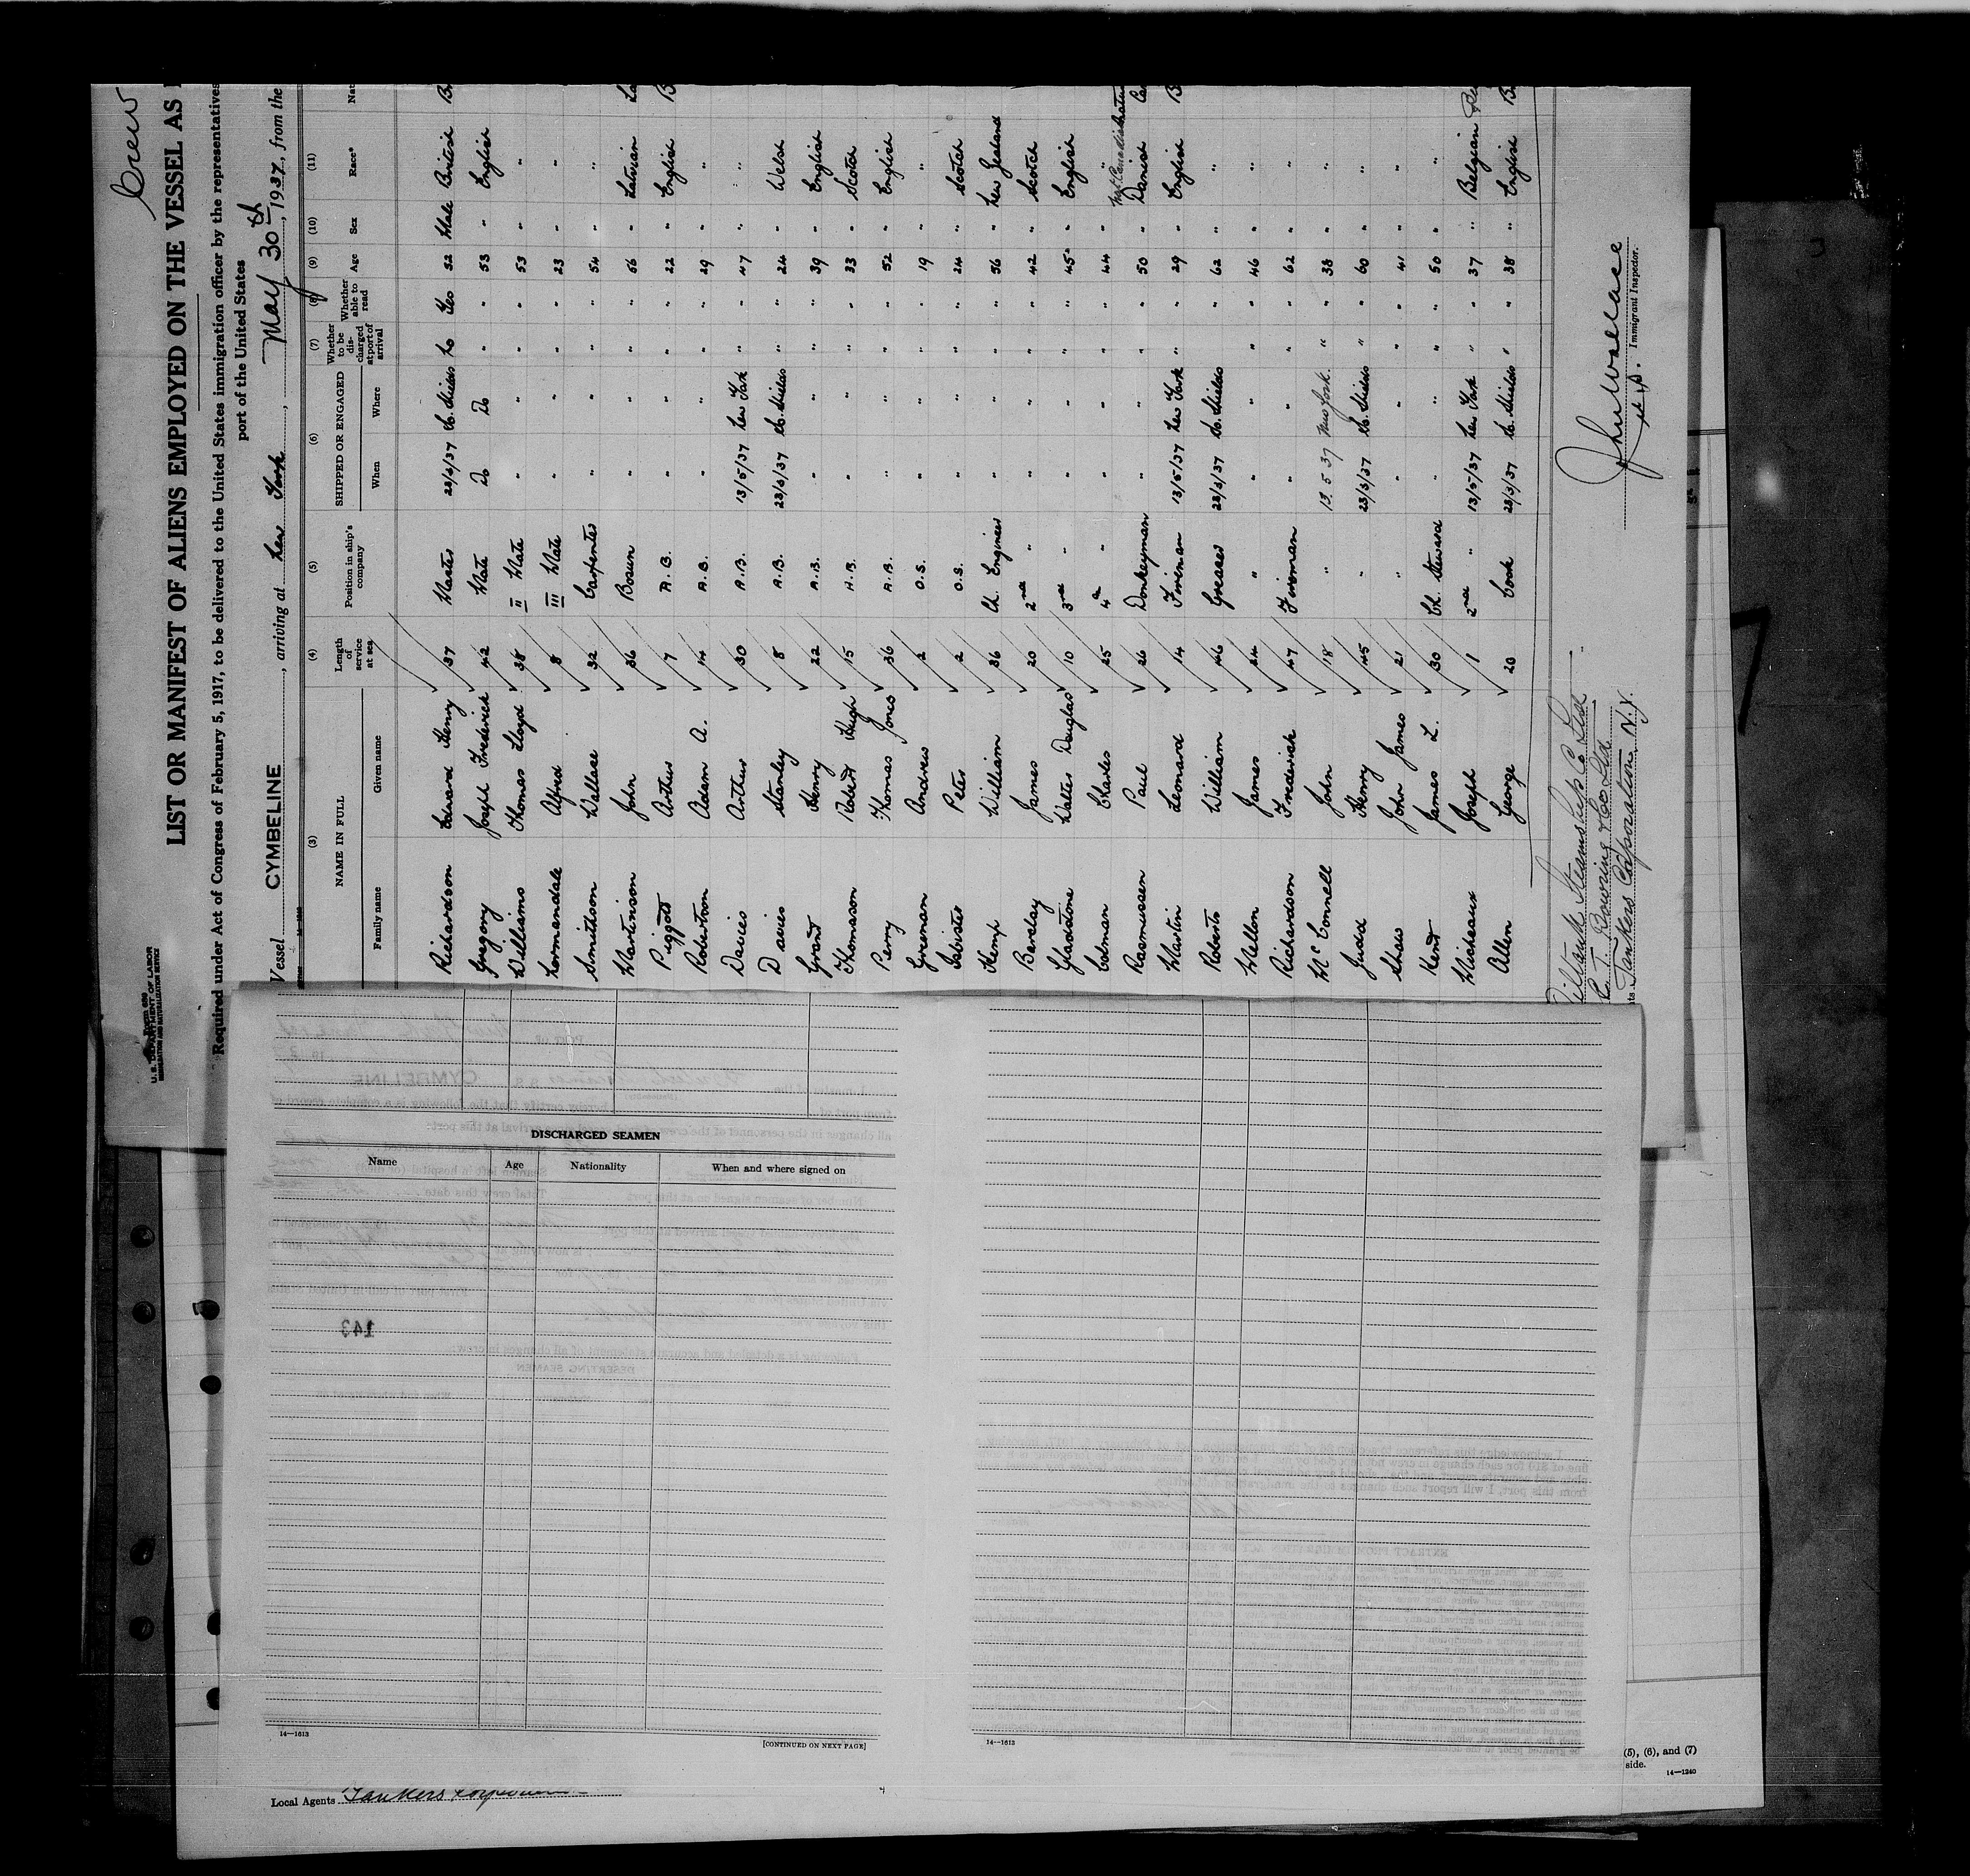 Crew
LIST OR MANIFEST OF ALIENS EMPLOYED ON THE VESSEL AS
Required under Act of Congress of February 5, 1917, to be delivered to the United States immigration officer by the representatives
port of the United States
U.S. DEPARTMENT OF LABOR
Vessel CYMBELINE, arriving at New York, May 30th, 1937, from the
(3) (4) (5) (6) (7) (8) (9) (10) (11)
NAME IN FULL Length of service at sea Position in ship's company SHIPPED OR ENGAGED Whether to be discharged at port of arrival Whether able to read Age Sex Race* Nat
Family name Given name When Where
Richardson Edward Henry 37 Master 23/3/37 So. Shields No Yes 52 Male British
Gregory Joseph Frederick 42 Mate Do Do " " 53 " English
Williams Thomas Lloyd 38 II Mate " " " " 53 " "
Normandale Alfred 8 III Mate " " " " 23 " "
Smithson Wallace 32 Carpenter " " " " 54 " "
Martinson John 36 Bosun " " " " 56 " Latvian La
Piggott Arthur 7 A.B. " " " " 22 " English B
Robertson Adam A. 14 A.B. " " " " 29 " "
Davies Arthur 30 A.B. 13/5/37 New York " " 47 " "
Davies Stanley 8 A.B. 23/3/37 So. Shields " " 24 " Welsh
Grant Henry 22 A.B. " " " " 39 " English
Thomason Robert Hugh 15 A.B. " " " " 33 " Scotch
Perry Thomas Jones 36 A.B. " " " " 52 " English
Greenan Andrew 2 O.S. " " " " 19 " "
Isbister Peter 2 O.S. " " " " 24 " Scotch
Kemp William 36 Ch. Engineer " " " " 56 " New Zealand
Beveley James 20 2nd " " " " " 42 " Scotch
Gladstone Walter Douglas 10 3rd " " " " " 45 " English
Colman Charles 25 4th " " " " " 44 " "
Rasmussen Paul 26 Donkeyman " " " " 50 " Danish
Martin Leonard 14 Fireman 13/5/37 New York " " 29 " English B
Roberts William 46 Greaser 23/3/37 So. Shields " 62 " "
Mellon James 24 " " " " " 46 " "
Richardson Frederick 47 Fireman " " " " 62 " "
McConnell John 18 " 13.5.37 New York. " " 38 " "
Judd Henry 45 " 23/3/37 So. Shields " " 60 " "
Shaw John James 21 " " " " " 41 " "
Kent James L. 30 Ch. Steward " " " " 50 " "
Micheaux Joseph 1 2nd " 13/5/37 New York " " 37 " Belgian
Allen George 20 Cook 23/3/37 So. Shields " " 38 " English
Tiltank Steamship Co Ltd
C. T. Bowring & Co Ltd
Tankers Corporation N.Y.
John Wallace
Immigrant Inspector.
DISCHARGED SEAMEN
Name Age Nationality When and where signed on
143
14—1613
[CONTINUED ON NEXT PAGE]
14—1613
Local Agents Tankers
(5), (6), and (7)
side.
14—1240